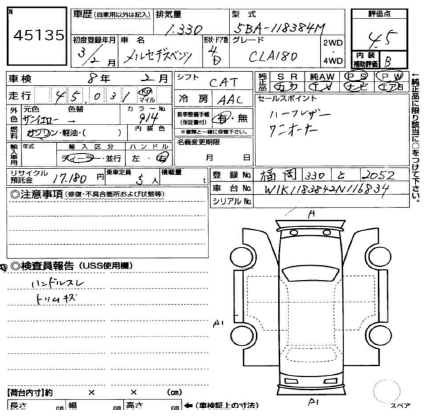 N
45135
車歴 (自家用以外は記入) 排気量 型式 評価点
1.330 5BA-118384M 4.5
初度登録年月 車名 形状・ドア数 グレード
3/2月 メルセデスベンツ 4D CLA180 2WD・4WD
内装補助評価 B
車検 8年 2月 シフト CAT
純正品 SR 純AW PS PW
走行 45,031 km マイル
冷房 AAC
セールスポイント
外元色 色替 カラーNo.
サンイエロー→ 914
ハーフレザー
ワンオーナー
燃料 ガソリン・軽油・( ) 内装色
新車整備手帳(保証書付) 有・無
※書類と一緒に保管下さい。
輸入車用 年式 輸入区分 ハンドル
ディーラー・並行 左・右
名義変更期限
月 日
リサイクル預託金 17,180円 乗車定員 5人 積載量 t
登録No. 福岡 330 と 2052
車台No. W1K1183842N116834
シリアルNo.
←純正品に限り該当に○をつけて下さい。
◎注意事項 (修復・不具合箇所および状態等)
◎検査員報告 (USS使用欄)
ハンドルスレ
トリムキズ
A
A1
A1
【荷台内寸】約 × × (cm)
長さ cm 幅 cm 高さ cm ←(車検証上の寸法)
スペア